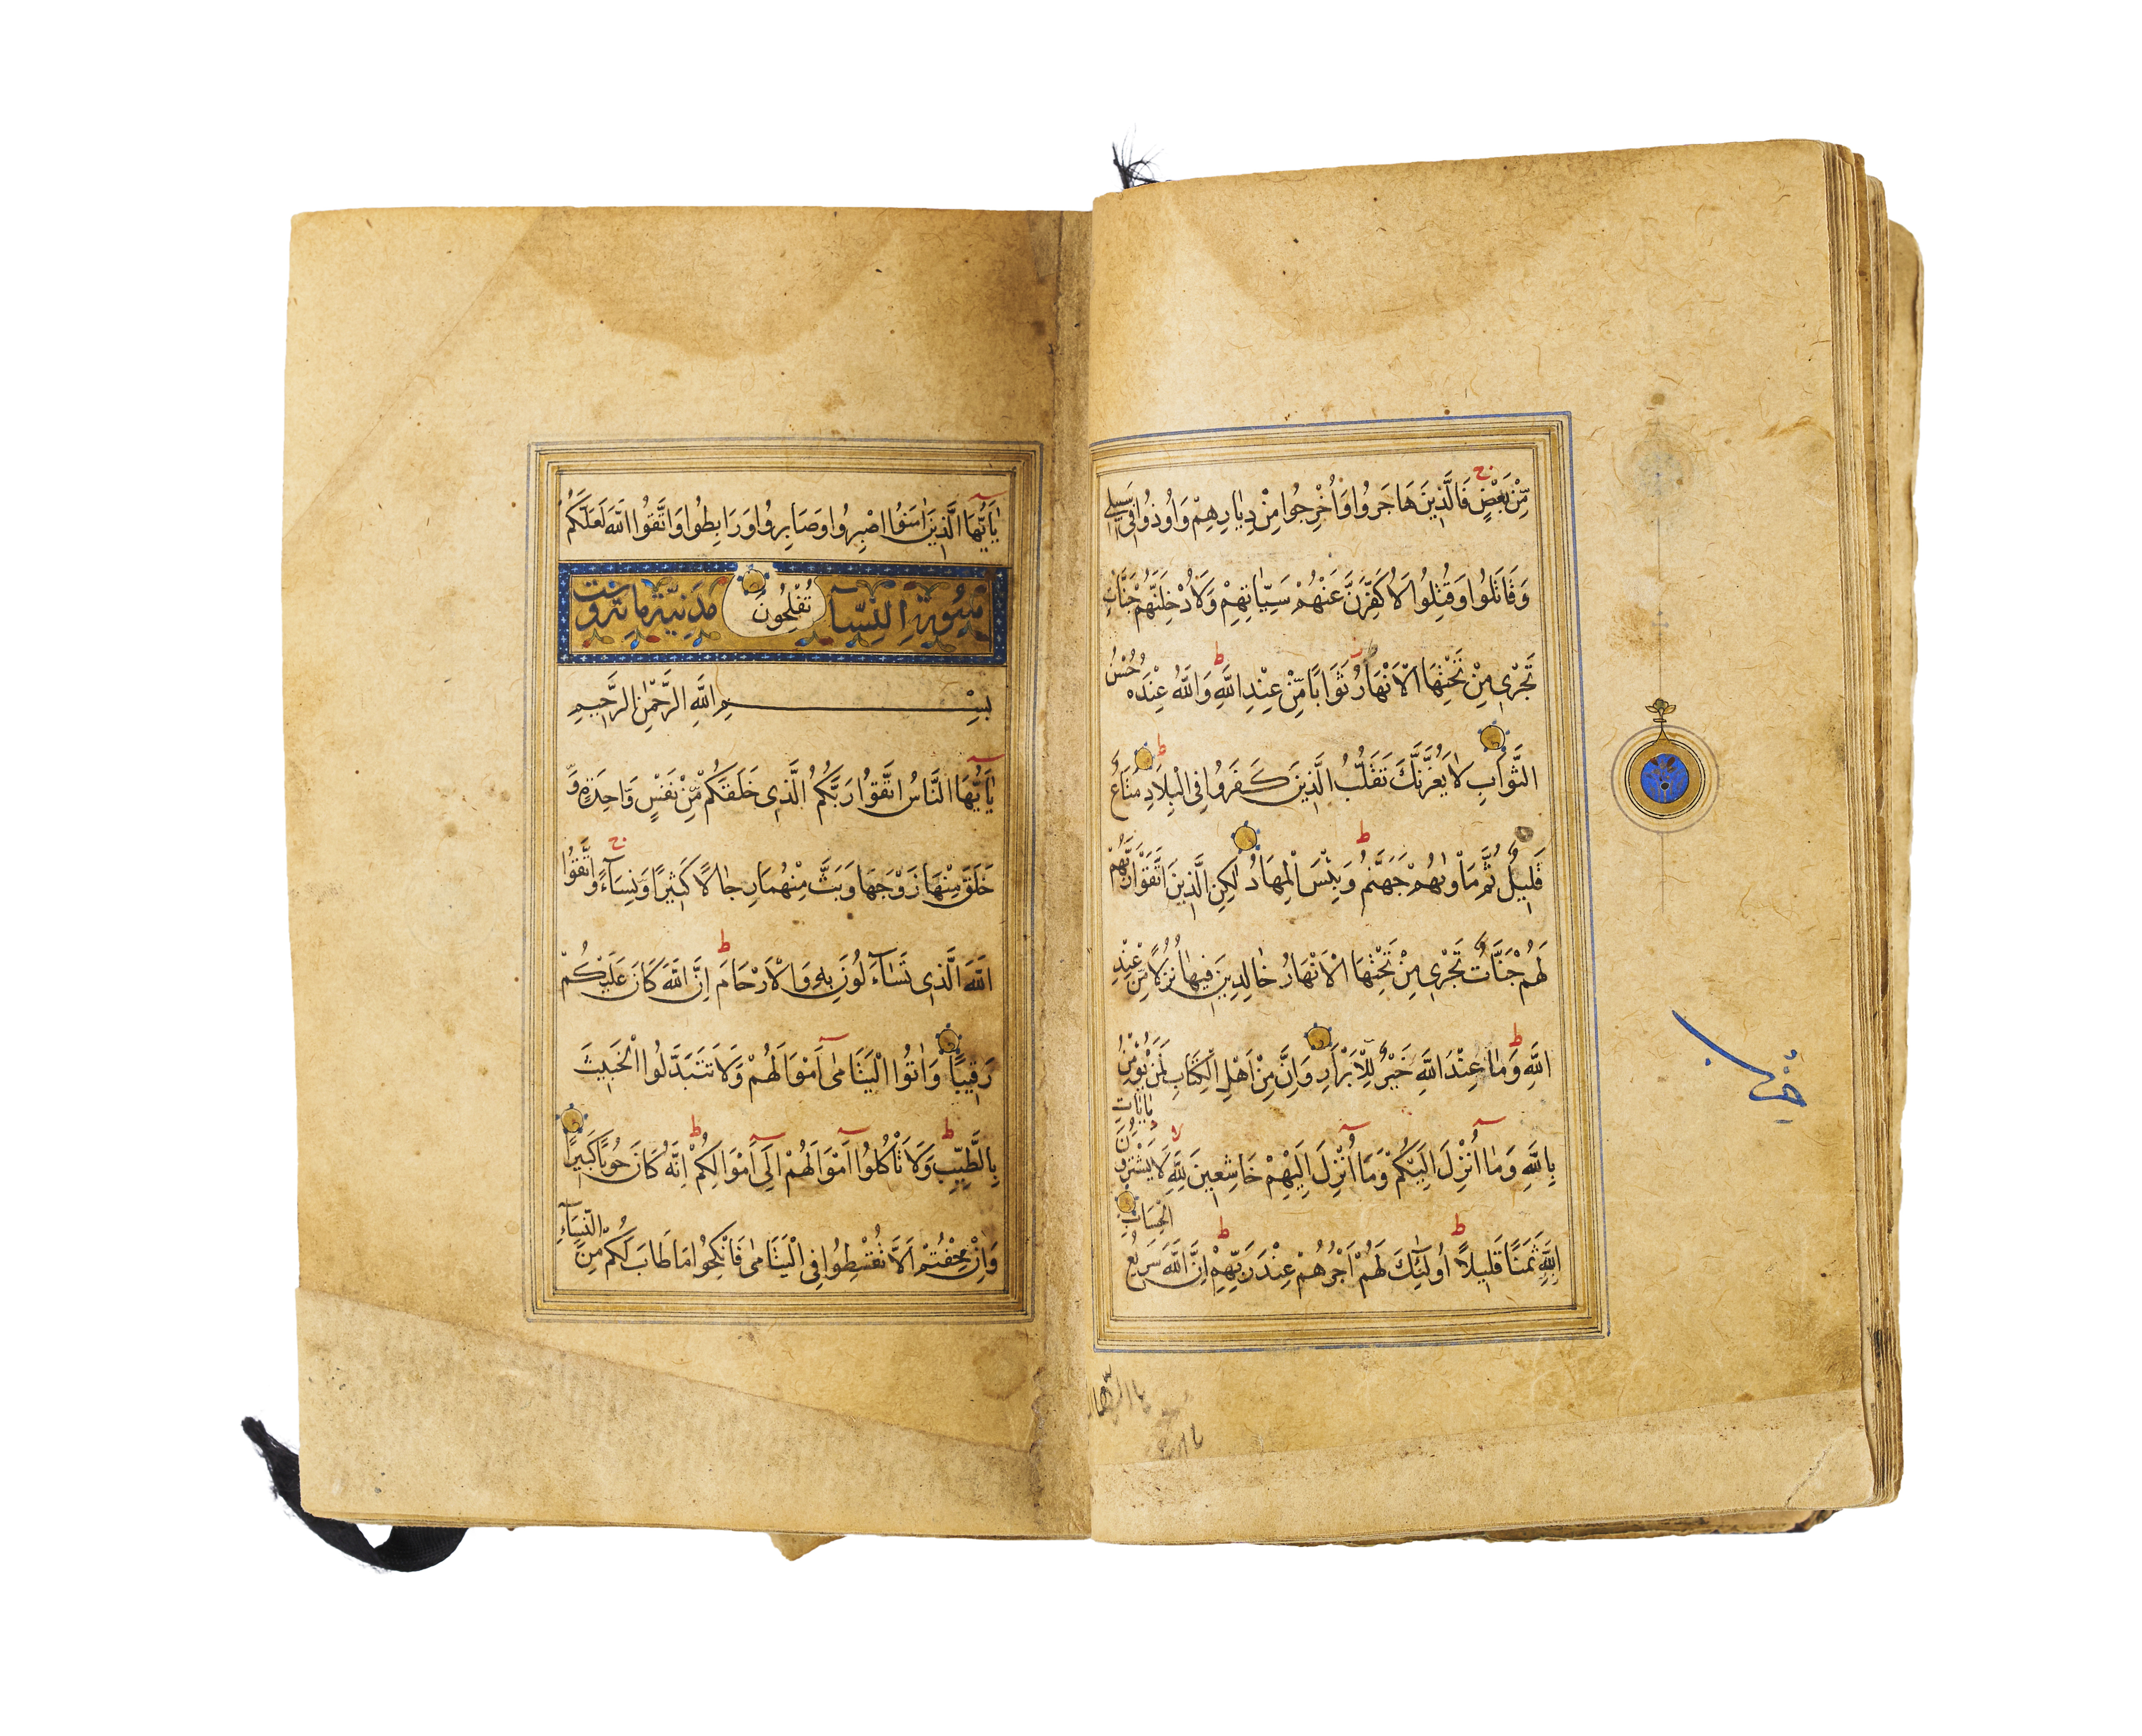 مِّنْ بَعْضٍ فَالَّذِينَ هَاجَرُوا وَأُخْرِجُوا مِنْ دِيَارِهِمْ وَأُوذُوا فِي سَبِيلِي
وَقَاتَلُوا وَقُتِلُوا لَأُكَفِّرَنَّ عَنْهُمْ سَيِّئَاتِهِمْ وَلَأُدْخِلَنَّهُمْ جَنَّاتٍ
تَجْرِي مِنْ تَحْتِهَا الْأَنْهَارُ ثَوَابًا مِّنْ عِنْدِ اللَّهِ ط وَاللَّهُ عِنْدَهُ حُسْنُ
الثَّوَابِ لَا يَغُرَّنَّكَ تَقَلُّبُ الَّذِينَ كَفَرُوا فِي الْبِلَادِ ط مَتَاعٌ
قَلِيلٌ ثُمَّ مَأْوٰىهُمْ جَهَنَّمُ ط وَبِئْسَ الْمِهَادُ لٰكِنِ الَّذِينَ اتَّقَوْا رَبَّهُمْ
لَهُمْ جَنَّاتٌ تَجْرِي مِنْ تَحْتِهَا الْأَنْهَارُ خَالِدِينَ فِيهَا نُزُلًا مِّنْ عِنْدِ
اللَّهِ ط وَمَا عِنْدَ اللَّهِ خَيْرٌ لِلْأَبْرَارِ وَإِنَّ مِنْ أَهْلِ الْكِتَابِ لَمَنْ يُؤْمِنُ
بِاللَّهِ وَمَا أُنْزِلَ إِلَيْكُمْ وَمَا أُنْزِلَ إِلَيْهِمْ خَاشِعِينَ لِلَّهِ لا لَا يَشْتَرُونَ بِآيَاتِ
اللَّهِ ثَمَنًا قَلِيلًا ط أُولَٰئِكَ لَهُمْ أَجْرُهُمْ عِنْدَ رَبِّهِمْ ط إِنَّ اللَّهَ سَرِيعُ الْحِسَابِ
يَا أَيُّهَا
يَا أَيُّهَا الَّذِينَ آمَنُوا اصْبِرُوا وَصَابِرُوا وَرَابِطُوا وَاتَّقُوا اللَّهَ لَعَلَّكُمْ
تُفْلِحُونَ
سُورَةُ النِّسَآءِ مَدَنِيَّة
بِسْمِ اللَّهِ الرَّحْمٰنِ الرَّحِيمِ
يَا أَيُّهَا النَّاسُ اتَّقُوا رَبَّكُمُ الَّذِي خَلَقَكُمْ مِّنْ نَفْسٍ وَاحِدَةٍ وَّ
خَلَقَ مِنْهَا زَوْجَهَا وَبَثَّ مِنْهُمَا رِجَالًا كَثِيرًا وَنِسَآءً وَاتَّقُوا
اللَّهَ الَّذِي تَسَآءَلُونَ بِهِ وَالْأَرْحَامَ ط إِنَّ اللَّهَ كَانَ عَلَيْكُمْ
رَقِيبًا وَآتُوا الْيَتَامَىٰ أَمْوَالَهُمْ وَلَا تَتَبَدَّلُوا الْخَبِيثَ
بِالطَّيِّبِ ط وَلَا تَأْكُلُوا أَمْوَالَهُمْ إِلَىٰ أَمْوَالِكُمْ ط إِنَّهُ كَانَ حُوبًا كَبِيرًا
وَإِنْ خِفْتُمْ أَلَّا تُقْسِطُوا فِي الْيَتَامَىٰ فَانْكِحُوا مَا طَابَ لَكُمْ مِّنَ النِّسَآءِ